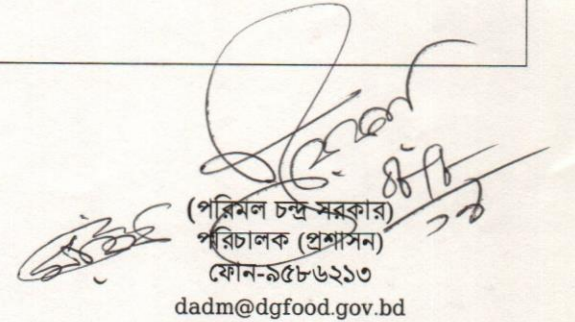 (পরিমল চন্দ্র সরকার)
পরিচালক (প্রশাসন)
ফোন-৯৫৮৬২১৩
dadm@dgfood.gov.bd